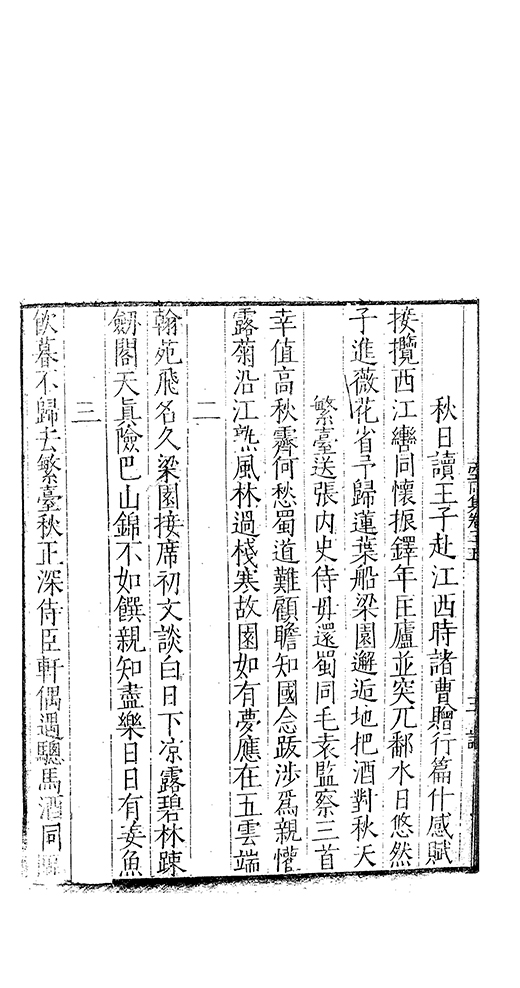 秋日讀王子赴江西時諸曹贈行篇什感賦
接攬西江轡同懷振鐸年匡廬並突兀鄱水日悠然
子進薇花省予歸蓮葉船梁園邂逅地把酒對秋天
繁臺送張内史侍毋還蜀同毛袁監察三首
幸值高秋霽何愁蜀道難顧瞻知國念跋涉爲親懽
露菊沿江𤍠風林過棧寒故園如有夢應在五雲端
二
翰苑飛名久梁園接席初文談白日下凉露碧林踈
劒閣天真險巴山錦不如饌親知盡樂日日有姜魚
三
飲暮不歸去繁臺秋正深侍臣軒偶遇驄馬酒同